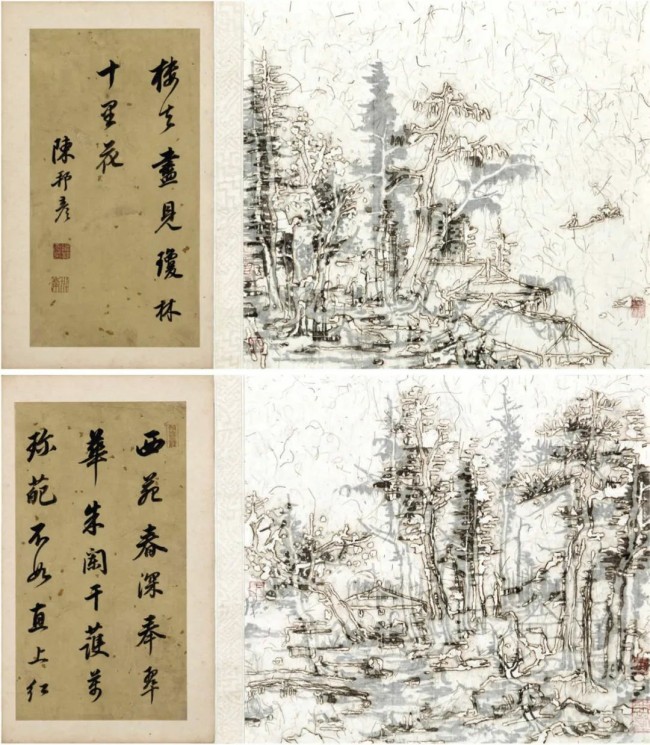 樓立盡見瓊林
十里花
陳邦彥
西苑春深奉翠
華朱闌干護萬
珍葩不如直上紅